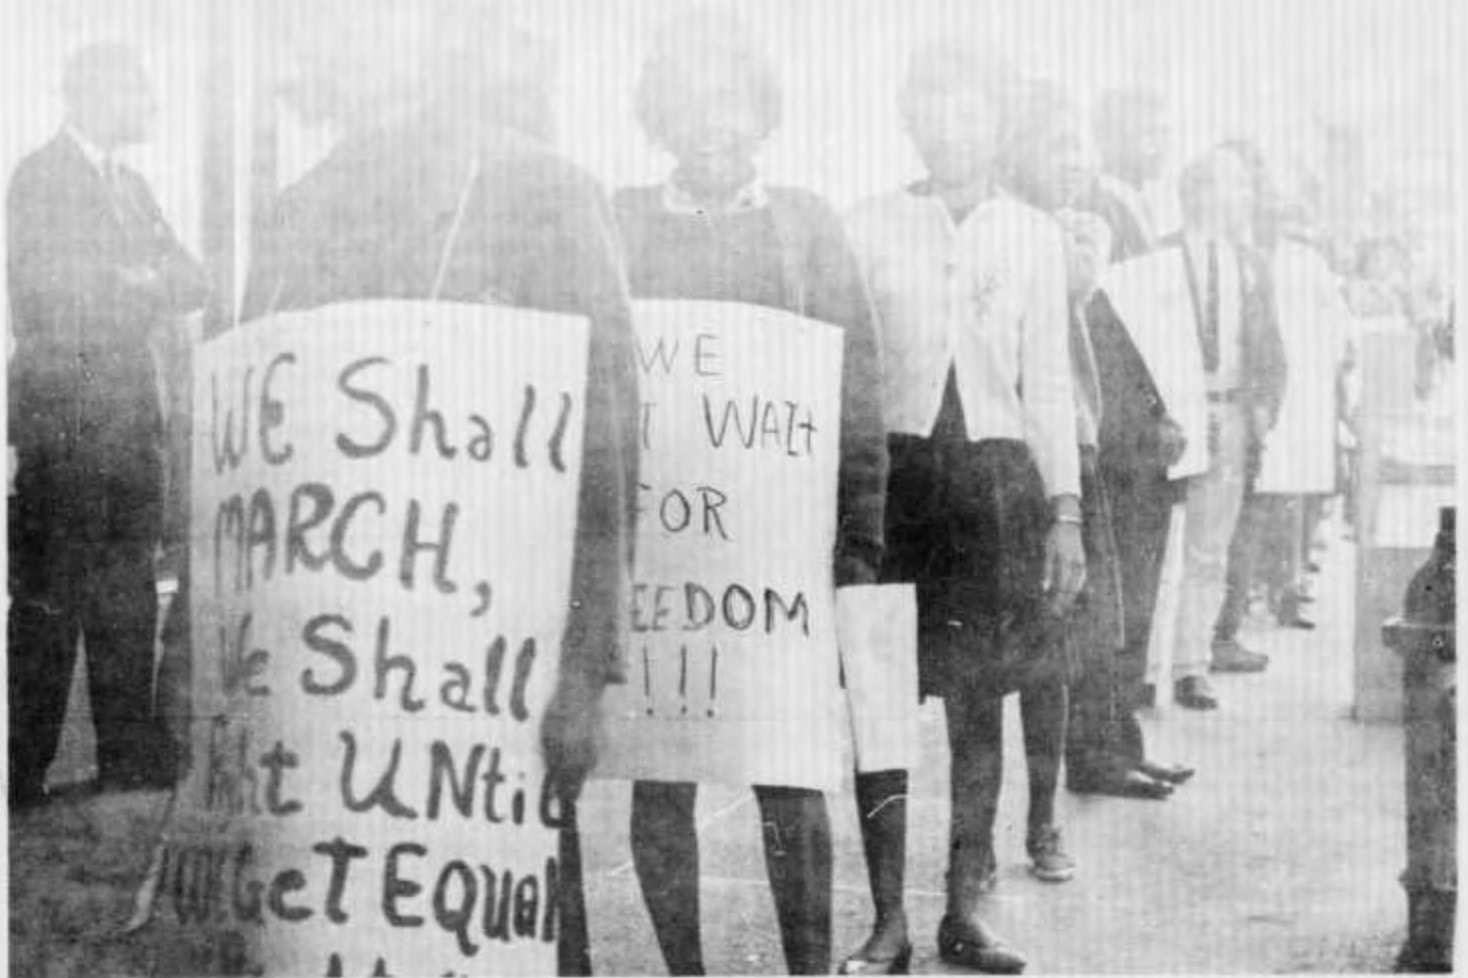 WE Shall
MARCH,
We Shall
UNtil
We GeT EQUal
WE
WAIt
FOR
EEDOM
!!!